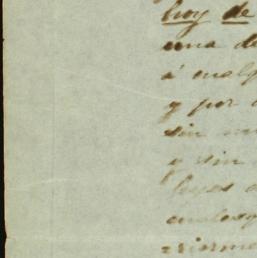 hoy de
una de
á cualq
y por
sin
y sin
leyes
cualesq
=riorme